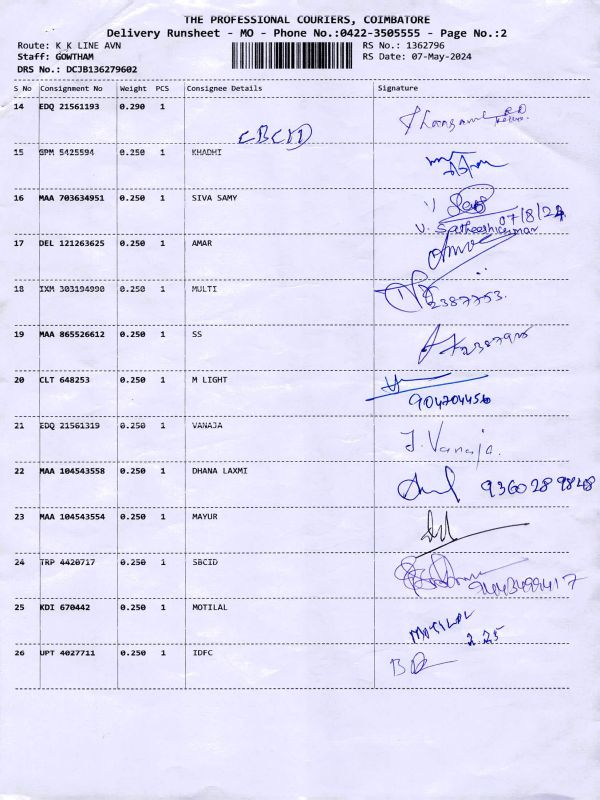 THE PROFESSIONAL COURIERS, COIMBATORE
Delivery Runsheet - MO - Phone No.:0422-3505555 - Page No.:2
Route: K K LINE AVN RS No.: 1362796
Staff: GOWTHAM RS Date: 07-May-2024
DRS No.: DCJB136279602
S No Consignment No Weight PCS Consignee Details Signature
14 EDQ 21561193 0.290 1
15 GPM 5425594 0.250 1 KHADHI
16 MAA 703634951 0.250 1 SIVA SAMY
07/8/24
17 DEL 121263625 0.250 1 AMAR
18 IXM 303194990 0.250 1 MULTI
2387753.
19 MAA 865526612 0.250 1 SS
20 CLT 648253 0.250 1 M LIGHT
904704456
21 EDQ 21561319 0.250 1 VANAJA J. Vanaja.
22 MAA 104543558 0.250 1 DHANA LAXMI
9360289848
23 MAA 104543554 0.250 1 MAYUR
24 TRP 4420717 0.250 1 SBCID
25 KDI 670442 0.250 1 MOTILAL MOTILAL
2.25
26 UPT 4027711 0.250 1 IDFC